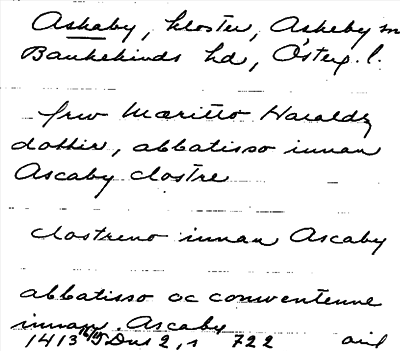 Askaby, kloster, Askeby sn
Bankekinds hd, Österg. l.
frw Mæritto Haraldz
dottir, abbatisso innan
Ascaby clostre
clostreno innan Ascaby
abbatisso oc conwentenne
innan Ascaby
1413 Dns 2, s 722